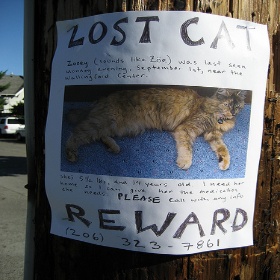 LOST CAT
Zooey (sounds like Zoie) was last seen
Monday evening, September 1st, near the
Wallingford Center.
She's 5½ lbs, and 14 years old. I need her
home so I can give her the medication
she needs. PLEASE call with any info
REWARD
(206) 323-7861